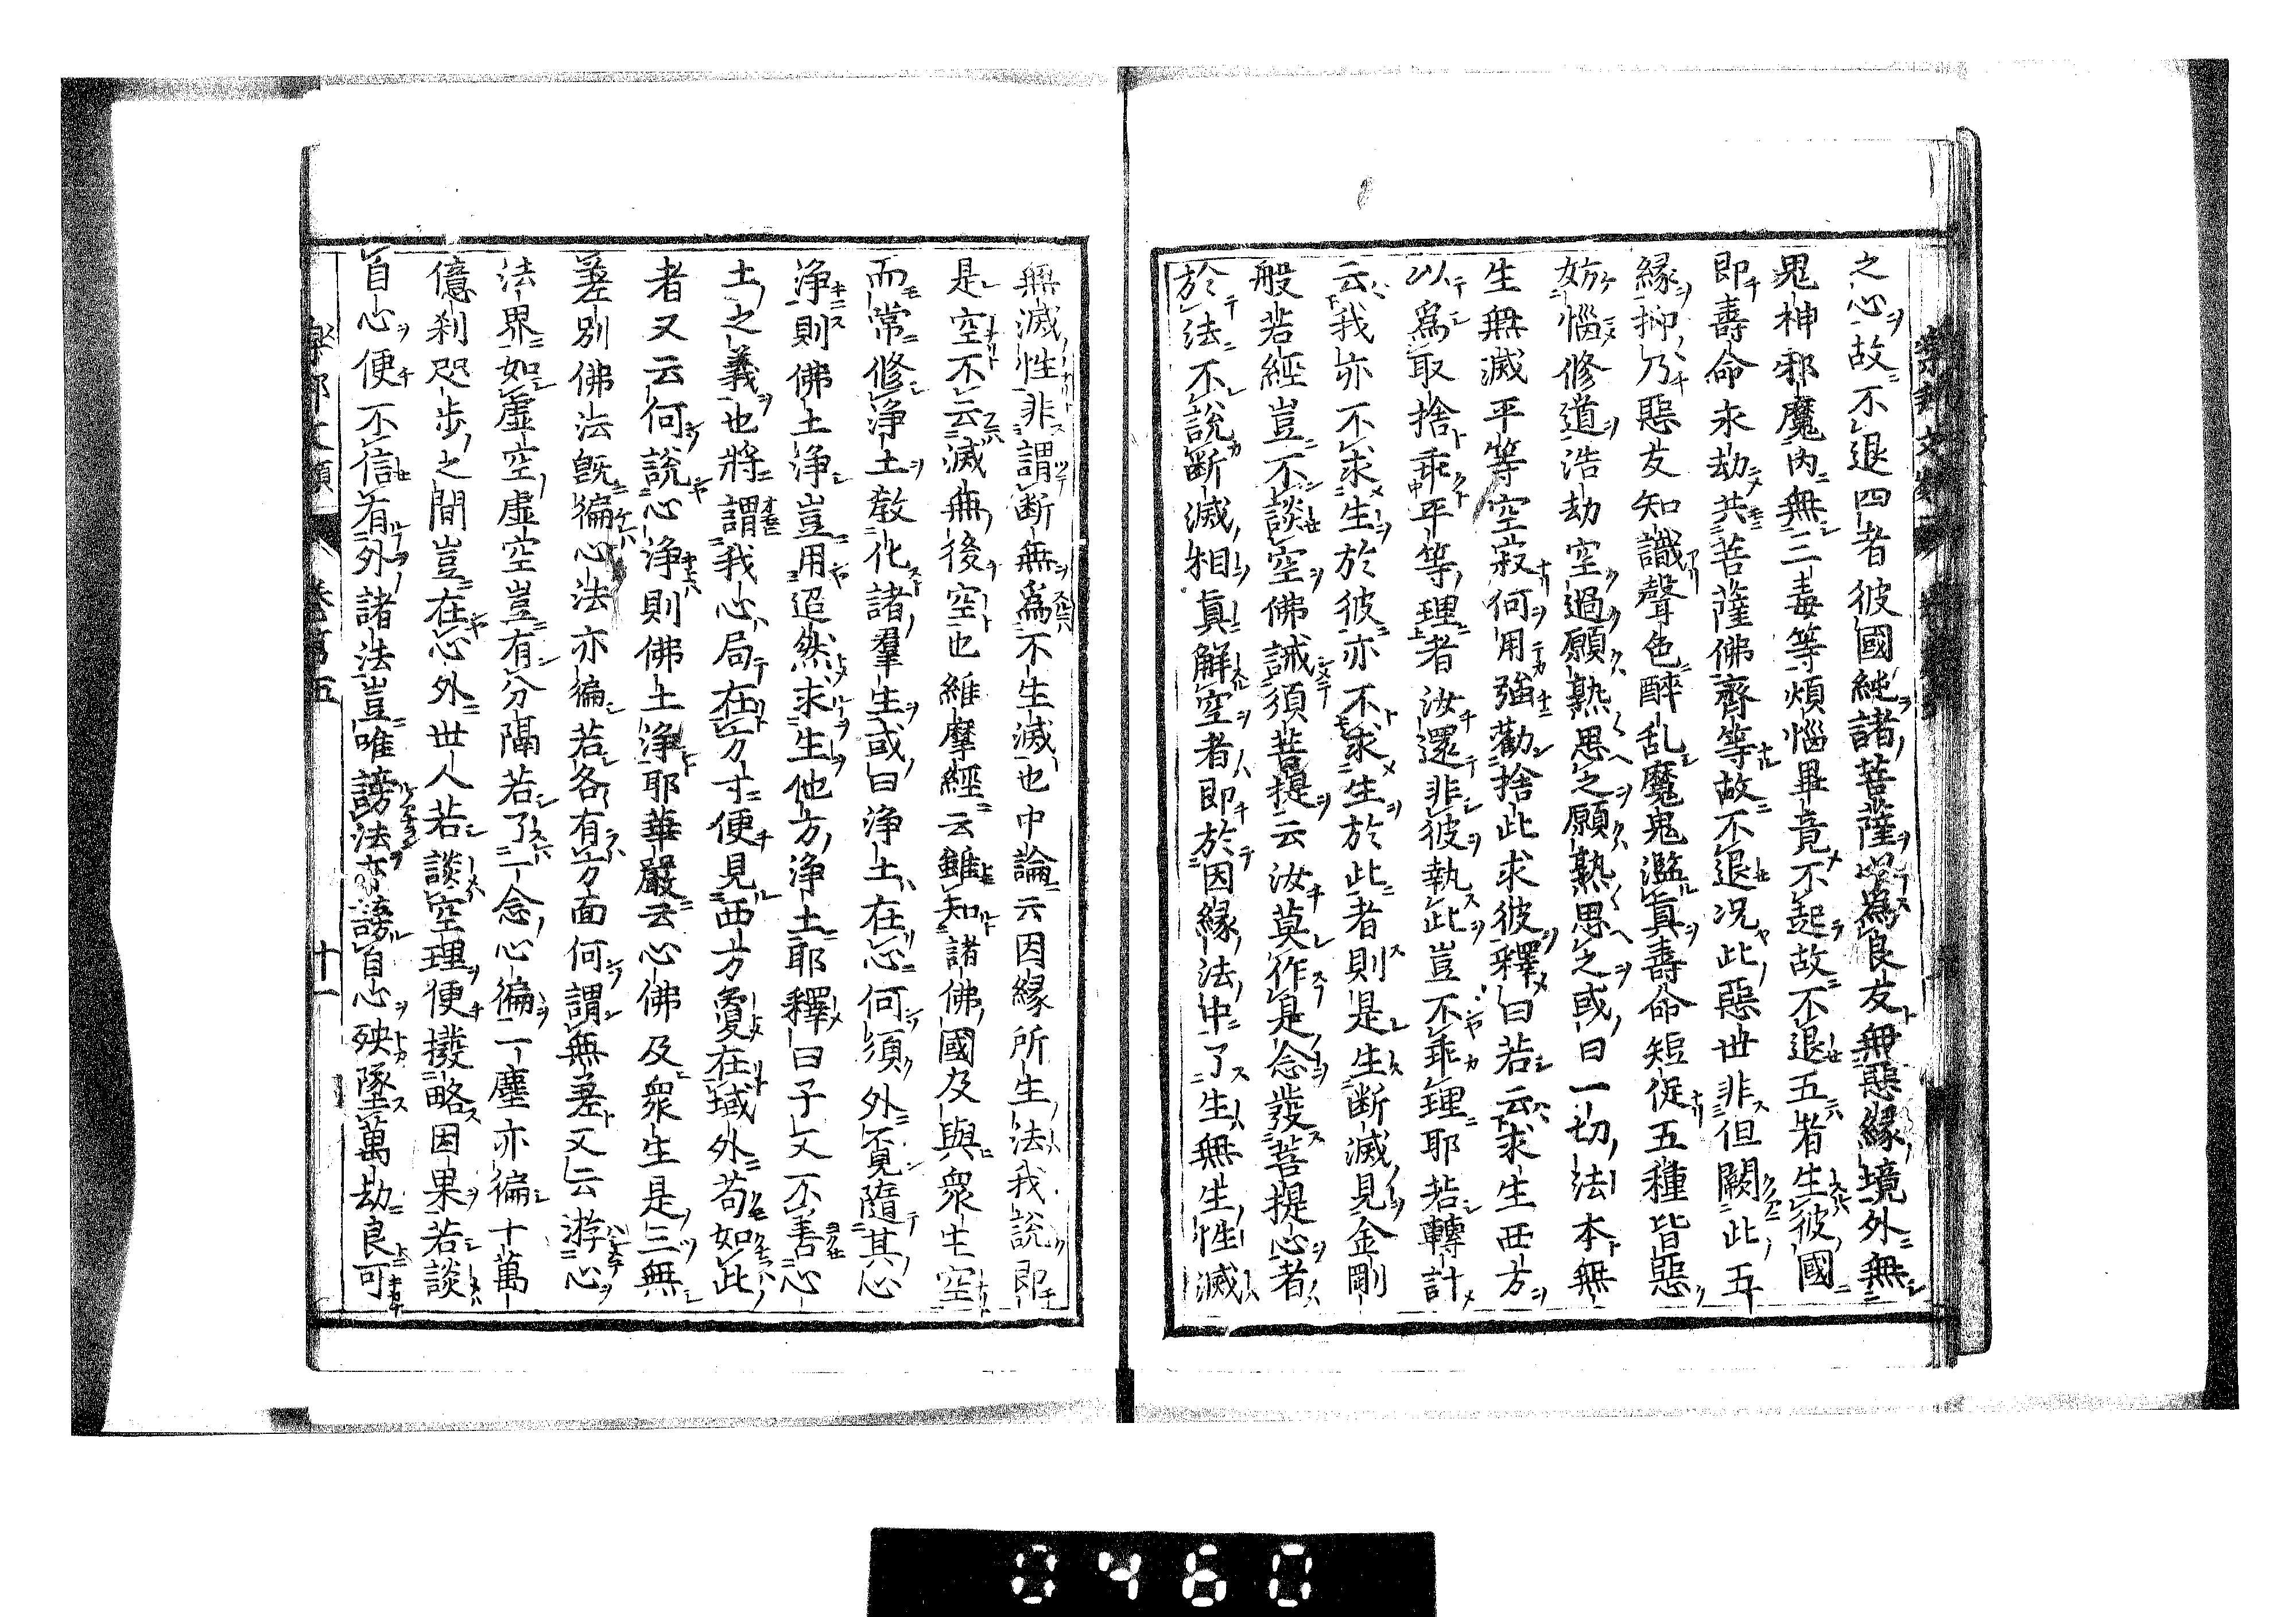 之心故不退四者彼國純諸菩薩以爲良友無惡緣境外無
鬼神邪魔内無三毒等煩惱畢竟不起故不退五者生彼國
即壽命永劫共菩薩佛齊等故不退况此惡世非但闕此五
緣抑乃惡友知識聲色醉乱魔鬼濫真壽命短促五種皆惡
妨惱修道浩劫空過願熟思之願熟思之或曰一切法本無
生無滅平等空寂何用強勸捨此求彼釋曰若云求生西方
以爲取捨乖平等理者汝還非彼執此豈不乖理耶若轉計
云我亦不求生於彼亦不求生於此者則是生斷滅見金剛
般若經豈不談空佛誡須菩提云汝莫作是念發菩提心者
於法不說斷滅相真解空者即於因緣法中了生無生性滅
無滅性非謂斷無爲不生滅也中論云因緣所生法我說即
是空不云滅無後空也維摩經云雖知諸佛國及與衆生空
而常修淨土教化諸羣生或曰淨土在心何須外覓隨其心
淨則佛土淨豈用迢然求生他方淨土耶釋曰子又不善心
土之義也將謂我心局在方寸便見西方敻在域外苟如此
者又云何說心淨則佛土淨耶華嚴云心佛及衆生是三無
差別佛法既徧心法亦徧若各有方面何謂無差又云游心
法界如虛空虛空豈有分隔若了一念心徧一塵亦徧十萬
億刹咫步之間豈在心外世人若談空理便撥略因果若談
自心便不信有外諸法豈唯謗法亦謗自心殃墜萬劫良可
樂邦文類 卷第五 十一